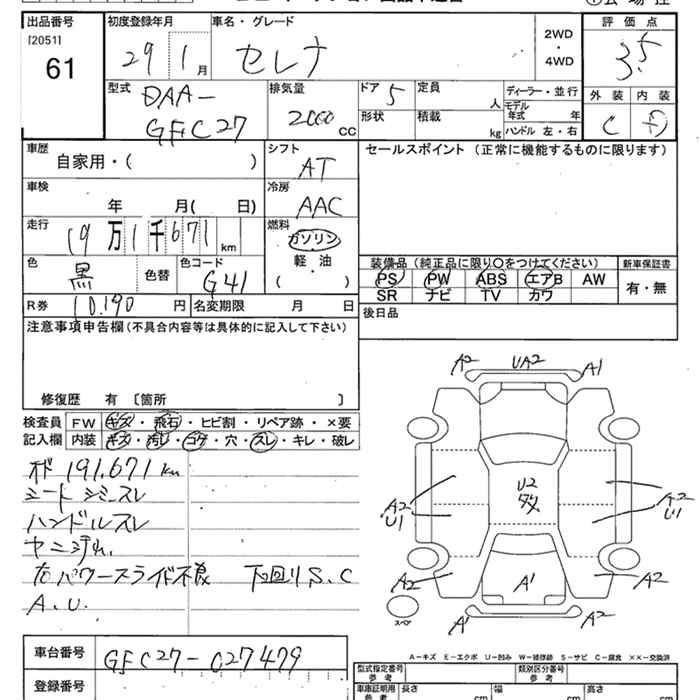 出品番号 初度登録年月 車名・グレード 2WD・4WD 評価点
[2051] 29 1月 セレナ 3.5
61
型式 排気量 ドア 5 定員 人 ディーラー・並行 外装 内装
DAA- 2000cc 形状 積載 kg モデル年式 年 C D
GFC27 ハンドル 左・右
車歴 シフト セールスポイント (正常に機能するものに限ります)
自家用・( ) AT
車検 冷房
年 月( 日) AAC
走行 燃料
19万1千671km ガソリン
軽・油
( ・ )
色 黒 色替 色コード G41
装備品 (純正品に限り○をつけてください) 新車保証書
PS PW ABS エアB AW 有・無
SR ナビ TV カワ
R券 10,190円 名変期限 月 日 後日品
注意事項申告欄(不具合内容等は具体的に記入して下さい)
修復歴 有 [箇所 ]
検査員 FW キズ・飛石・ヒビ割・リペア跡・×要
記入欄 内装 キズ・汚レ・コゲ・穴・スレ・キレ・破レ
191,671km
シートシミスレ
ハンドルスレ
ヤニ汚れ
右パワースライド不良 下回りS.C
A.U.
A2 UA2 A1
A2 U2 A2
U1 U1
A2 A1 A2
A1 A2
スペア
A-キズ E-エクボ U-凹み W-補修跡 S-サビ C-腐食 ××-交換済
車台番号 GFC27-027479
登録番号
型式指定番号 参考 類別区分番号 参考
車庫証明用 参考 長さ cm 幅 cm 高さ cm